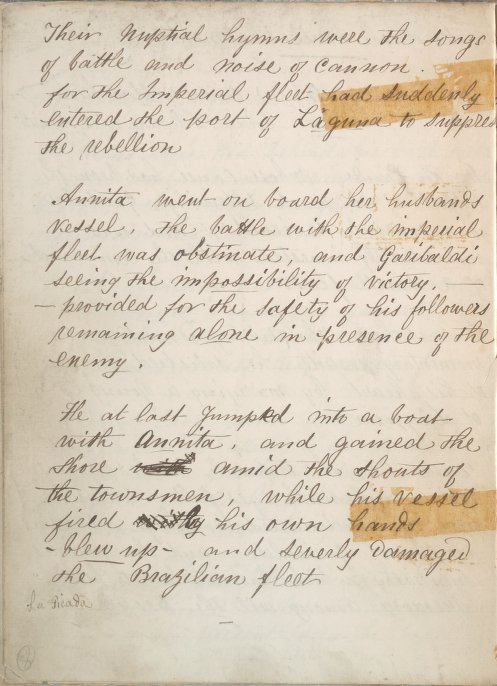 Their Nuptial hymns were the songs
of battle and noise of cannon.
for the Imperial fleet had suddenly
entered the port of Laguna to suppres
the rebellion
Annita went on board her husbands
vessel, the battle with the imperial
fleet was obstinate, and Garibaldi
seeing the impossibility of victory, —
— provided for the safety of his followers
remaining alone in presence of the
enemy.
He at last jumped into a boat
with Annita, and gained the
shore amid the shouts of
the townsmen, while his vessel
fired by his own hands
- blew up - and severly damaged
the Brazilian fleet
La Picada
—
8